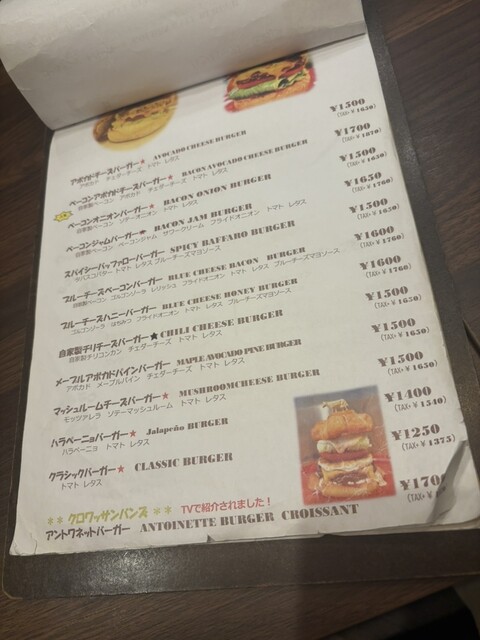 アボカドチーズバーガー★ AVOCADO CHEESE BURGER ¥1500
アボカド チェダーチーズ トマト レタス (TAX+¥1650)
ベーコンアボカドチーズバーガー★ BACON AVOCADO CHEESE BURGER ¥1700
自家製ベーコン アボカド チェダーチーズ トマト レタス (TAX+¥1870)
ベーコンオニオンバーガー★ BACON ONION BURGER ¥1500
自家製ベーコン ソテーオニオン トマト レタス (TAX+¥1650)
ベーコンジャムバーガー★ BACON JAM BURGER ¥1650
自家製ベーコン ベーコンジャム サワークリーム フライドオニオン トマト レタス (TAX+¥1760)
スパイシーバッファローバーガー SPICY BAFFARO BURGER ¥1500
トマト レタス ブルーチーズマヨソース (TAX+¥1650)
ブルーチーズベーコンバーガー BLUE CHEESE BACON BURGER ¥1600
自家製ベーコン ゴルゴンゾーラ レリッシュ フライドオニオン トマト レタス ブルーチーズマヨソース (TAX+¥1760)
ブルーチーズハニーバーガー BLUE CHEESE HONEY BURGER ¥1600
ゴルゴンゾーラ はちみつ フライドオニオン トマト レタス ブルーチーズマヨソース (TAX+¥1760)
自家製チリチーズバーガー★ CHILI CHEESE BURGER ¥1500
自家製チリコンカン チェダーチーズ トマト レタス (TAX+¥1650)
メープルアボカドパインバーガー MAPLE AVOCADO PINE BURGER ¥1500
アボカド メープルパイン チェダーチーズ トマト レタス (TAX+¥1650)
マッシュルームチーズバーガー★ MUSHROOMCHEESE BURGER ¥1500
モッツアレラ ソテーマッシュルーム トマト レタス (TAX+¥1650)
ハラペーニョバーガー★ Jalapeño BURGER ¥1400
ハラペーニョ トマト レタス (TAX+¥1540)
クラシックバーガー★ CLASSIC BURGER ¥1250
トマト レタス (TAX+¥1375)
** クロワッサンバンズ ** TVで紹介されました！
アントワネットバーガー ANTOINETTE BURGER CROISSANT ¥1700